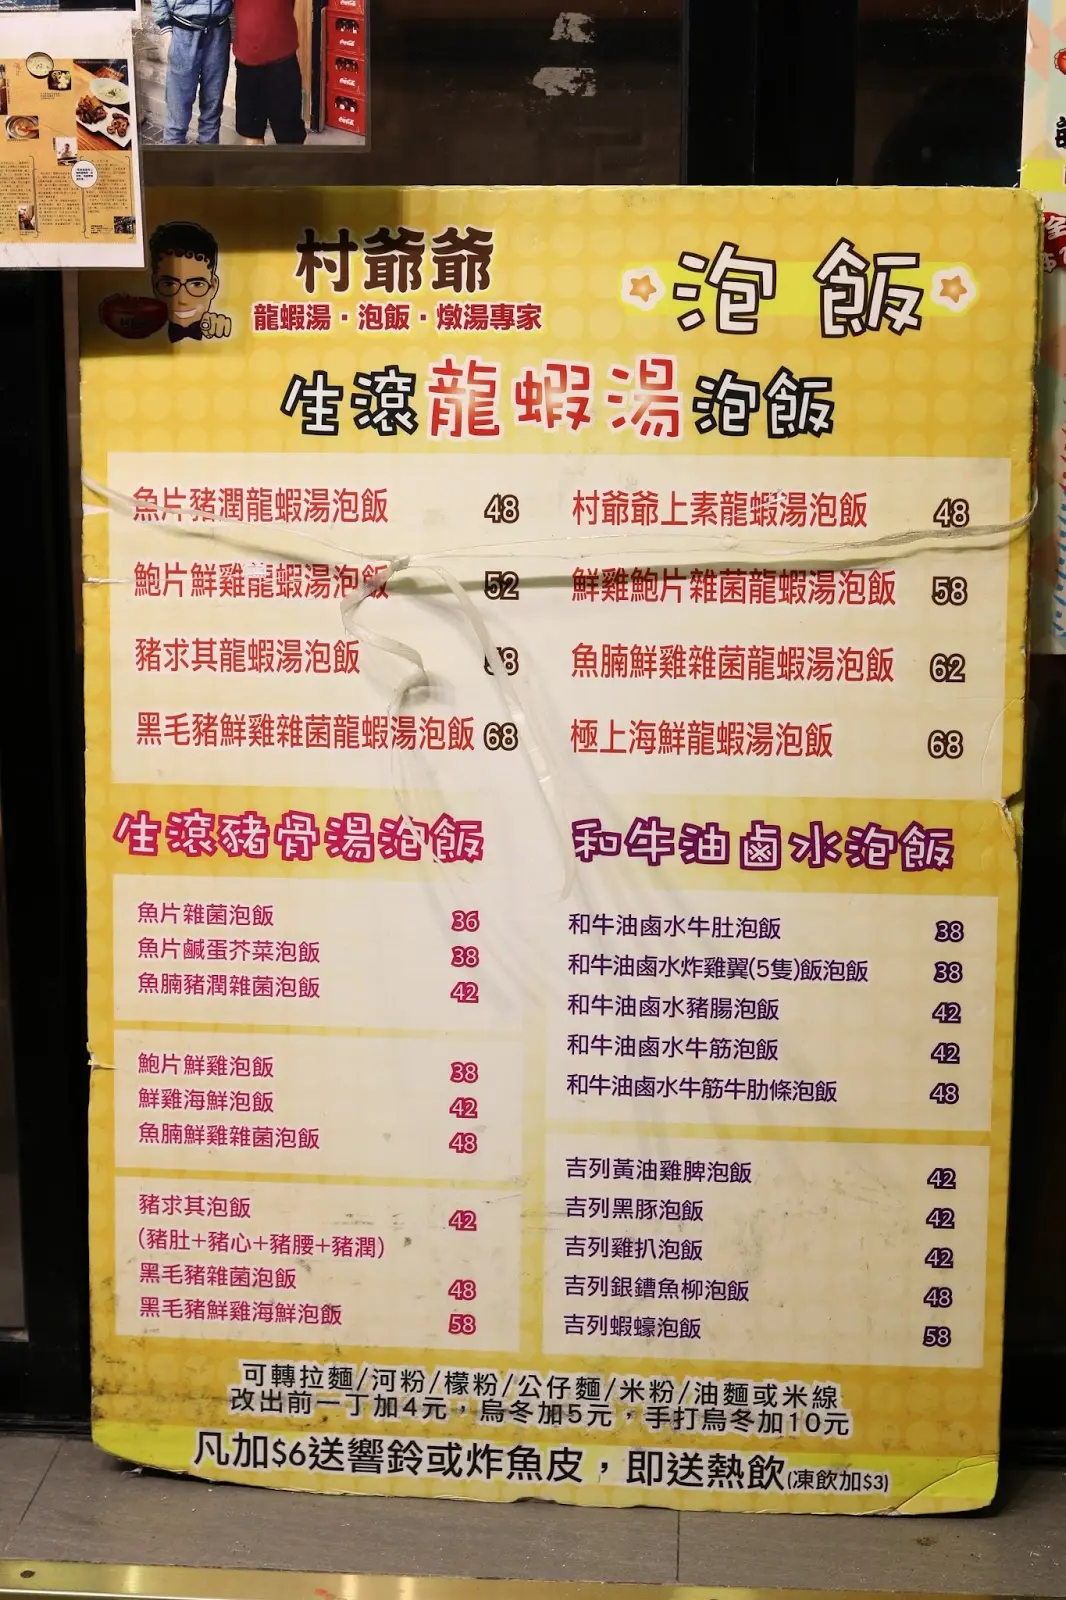 村爺爺
龍蝦湯・泡飯・燉湯專家
泡飯
生滾龍蝦湯泡飯
魚片豬潤龍蝦湯泡飯 48
鮑片鮮雞龍蝦湯泡飯 52
豬求其龍蝦湯泡飯
黑毛豬鮮雞雜菌龍蝦湯泡飯 68
村爺爺上素龍蝦湯泡飯 48
鮮雞鮑片雜菌龍蝦湯泡飯 58
魚腩鮮雞雜菌龍蝦湯泡飯 62
極上海鮮龍蝦湯泡飯 68
生滾豬骨湯泡飯
魚片雜菌泡飯 36
魚片鹹蛋芥菜泡飯 38
魚腩豬潤雜菌泡飯 42
鮑片鮮雞泡飯 38
鮮雞海鮮泡飯 42
魚腩鮮雞雜菌泡飯 48
豬求其泡飯 42
(豬肚+豬心+豬腰+豬潤)
黑毛豬雜菌泡飯 48
黑毛豬鮮雞海鮮泡飯 58
和牛油鹵水泡飯
和牛油鹵水牛肚泡飯 38
和牛油鹵水炸雞翼(5隻)飯泡飯 38
和牛油鹵水豬腸泡飯 42
和牛油鹵水牛筋泡飯 42
和牛油鹵水牛筋牛肋條泡飯 48
吉列黃油雞脾泡飯 42
吉列黑豚泡飯 42
吉列雞扒泡飯 42
吉列銀鱈魚柳泡飯 48
吉列蝦蠔泡飯 58
可轉拉麵/河粉/檬粉/公仔麵/米粉/油麵或米線
改出前一丁加4元，烏冬加5元，手打烏冬加10元
凡加$6送響鈴或炸魚皮，即送熱飲(凍飲加$3)